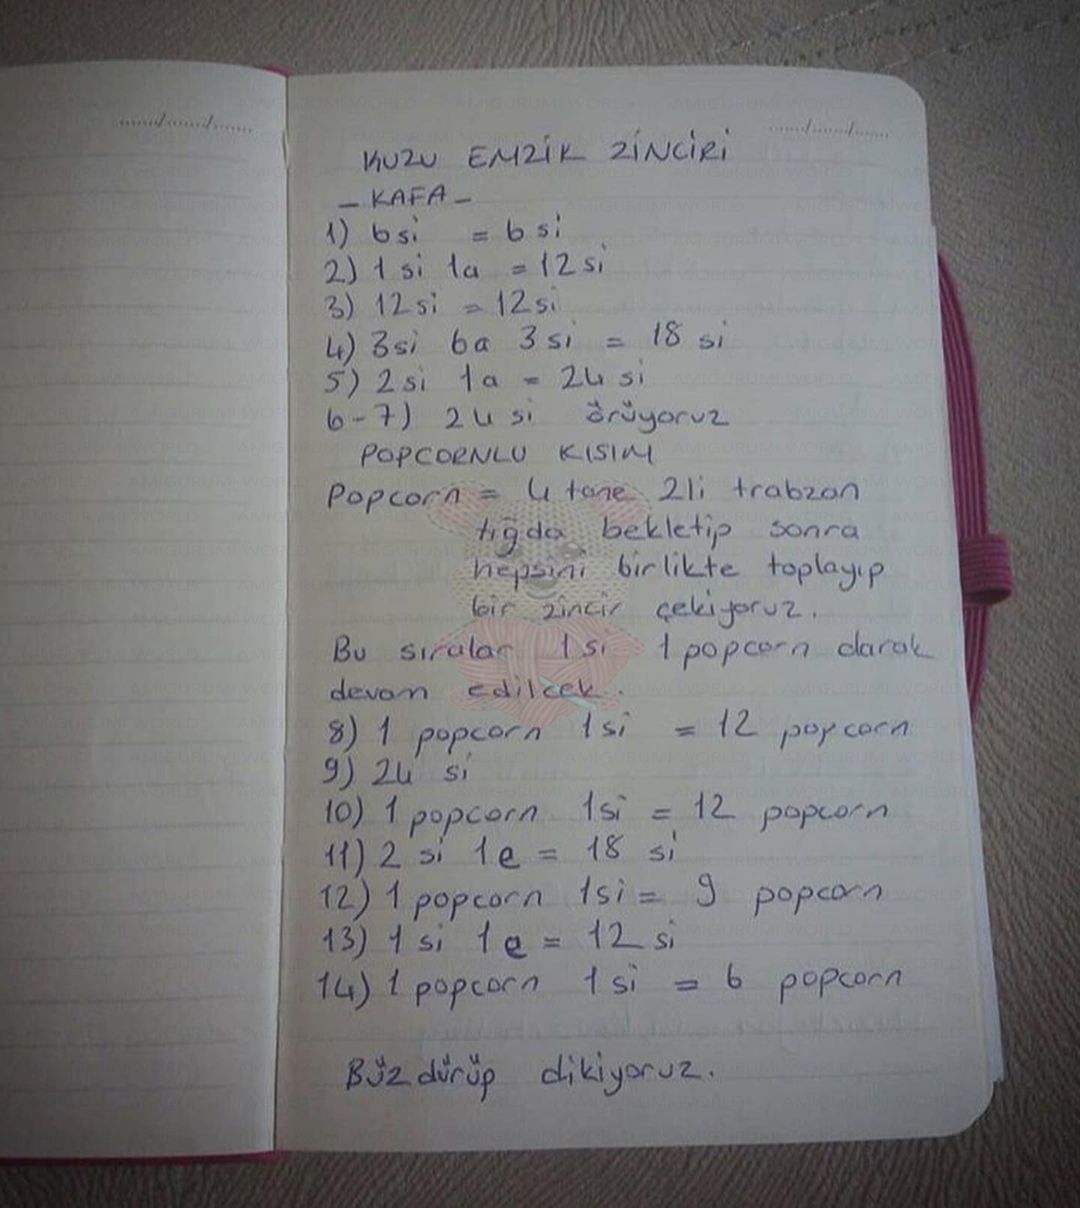 ....../....../......
....../....../......
KUZU EMZİK ZİNCİRİ
- KAFA -
1) 6 si = 6 si
2) 1 si 1a = 12 si
3) 12 si = 12 si
4) 3 si 6a 3 si = 18 si
5) 2 si 1a = 24 si
6-7) 24 si örüyoruz
POPCORNLU KISIM
Popcorn = 4 tane 2li trabzan
tığda bekletip sonra
hepsini birlikte toplayıp
bir zincir çekiyoruz.
Bu sıralar 1 si 1 popcorn olarak
devam edilcek.
8) 1 popcorn 1 si = 12 popcorn
9) 24 si
10) 1 popcorn 1si = 12 popcorn
11) 2 si 1e = 18 si
12) 1 popcorn 1si = 9 popcorn
13) 1 si 1e = 12 si
14) 1 popcorn 1 si = 6 popcorn
Büzdürüp dikiyoruz.